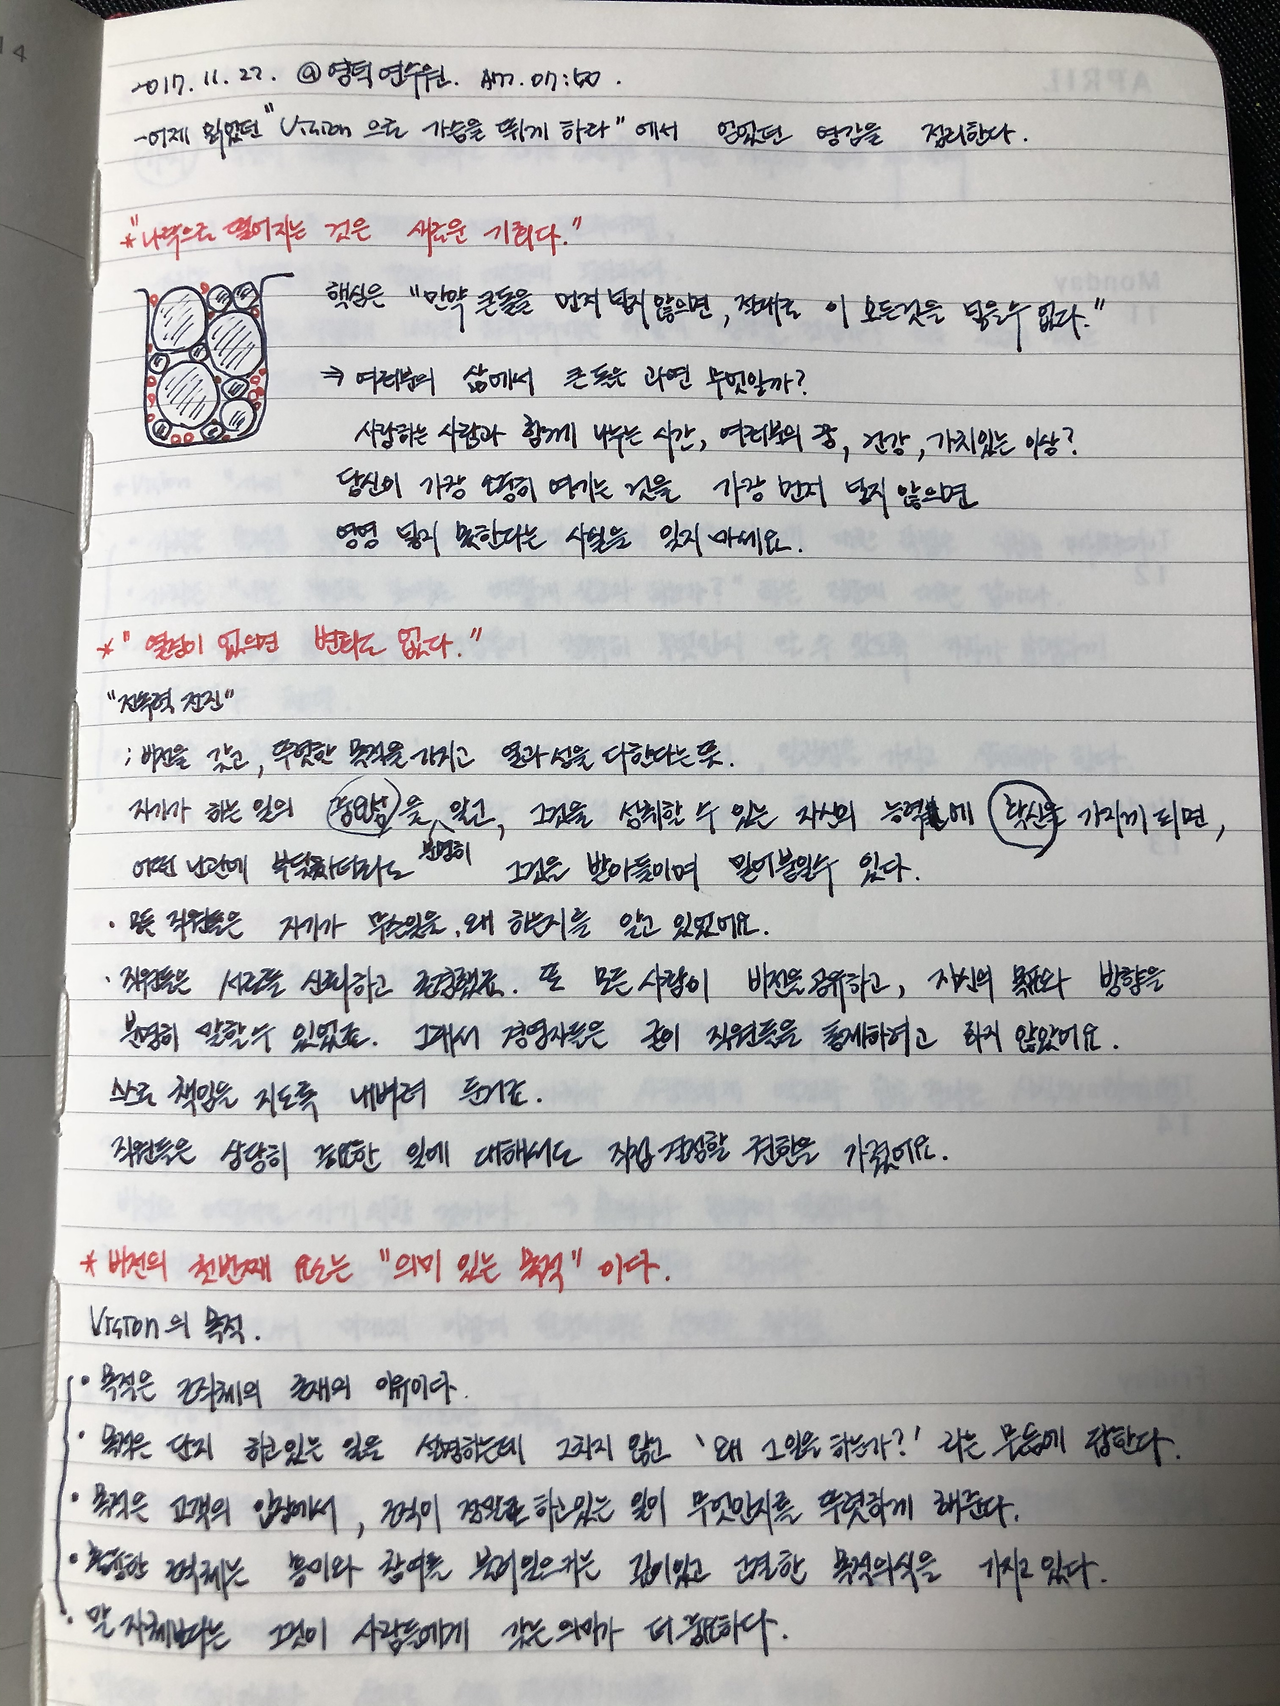 2017. 11. 22. @ 영덕연수원. Am. 07:50.
- 어제 읽었던 "Vision 으로 가슴을 뛰게 하라" 에서 얻었던 영감을 정리한다.
* "나락으로 떨어지는 것은 새로운 기회다."
핵심은 "만약 큰돌을 먼저 넣지 않으면, 절대로 이 모든것을 넣을수 없다."
⇒ 여러분의 삶에서 큰 돌은 과연 무엇일까?
사랑하는 사람과 함께 나누는 시간, 여러분의 꿈, 건강, 가치있는 이상?
당신이 가장 소중히 여기는 것을 가장 먼저 넣지 않으면
영영 넣지 못한다는 사실을 잊지 마세요.
* " 열정이 없으면 변화도 없다."
"전속력 전진"
; 비전을 갖고, 뚜렷한 목적을 가지고 열과 성을 다한다는 뜻.
자기가 하는 일의 중요성을 알고, 그것을 성취할 수 있는 자신의 능력에 확신을 가지게 되면,
분명히
어떤 난관에 부딪히더라도 그것을 받아들이며 밀어붙일수 있다.
· 모든 직원들은 자기가 무슨일을, 왜 하는지를 알고 있었어요.
· 직원들은 서로를 신뢰하고 존경했죠. 또 모든 사람이 비전을 공유하고, 자신의 목표와 방향을
분명히 말할 수 있었죠. 그래서 경영자들은 굳이 직원들을 통제하려고 하지 않았어요.
스스로 책임을 지도록 내버려 둔거죠.
직원들은 상당히 중요한 일에 대해서도 직접 결정할 권한을 가졌어요.
* 비전의 첫번째 요소는 "의미 있는 목적" 이다.
Vision의 목적.
· 목적은 조직체의 존재의 이유이다.
· 목적은 단지 하고있는 일을 설명하는데 그치지 않고 '왜 그 일을 하는가?' 라는 물음에 답한다.
· 목적은 고객의 입장에서, 조직이 정말로 하고있는 일이 무엇인지를 뚜렷하게 해준다.
· 훌륭한 조직체는 몰입과 참여를 불러일으키는 깊이있고 고결한 목적의식을 가지고 있다.
· 말 자체보다는 그것이 사람들에게 갖는 의미가 더 중요하다.